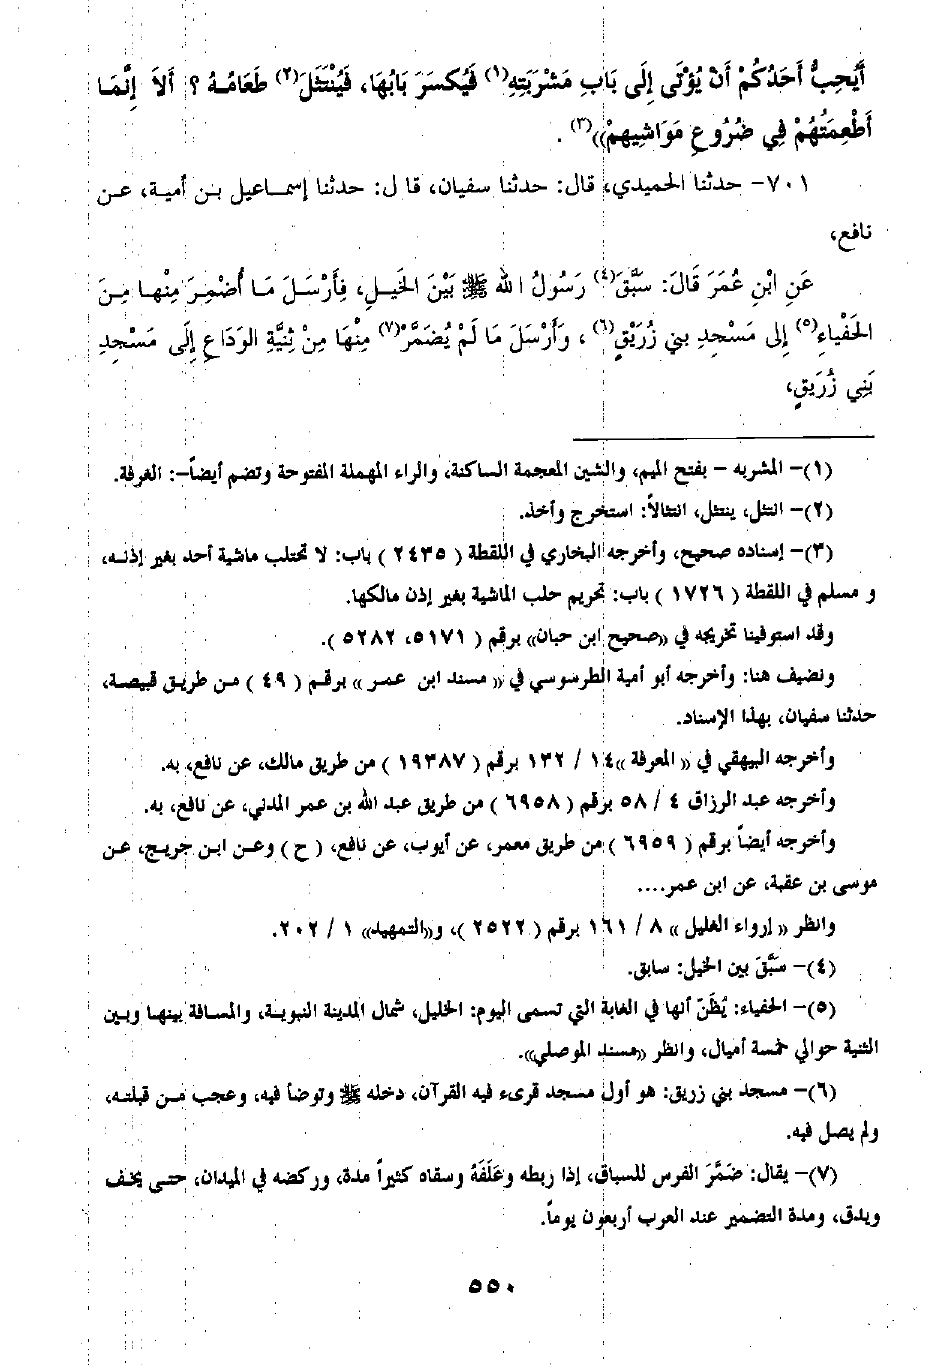 أَيُحِبُّ أَحَدُكُمْ أَنْ يُؤْتَى إِلَى بَابِ مَشْرَبَتِهِ(١) فَيُكسَرَ بَابُهَا، فَيُنْتَثَلَ(٢) طَعَامُهُ ؟ أَلاَ إِنَّمَا
أَطْعِمَتُهُمْ فِي ضُرُوعِ مَوَاشِيهِمْ))(٣) .
٧٠١- حدثنا الحميدي، قال: حدثنا سفيان، قا ل: حدثنا إسماعيل بن أمية، عن
نافع،
عَنِ ابْنِ عُمَرَ قَالَ: سَبَّقَ(٤) رَسُولُ الله ﷺ بَيْنَ الخَيلِ، فَأَرْسَلَ مَا أُضْمِرَ مِنْها مِنَ
الحَفْيَاءِ(٥) إِلى مَسْجدِ بني زُرَيْقٍ(٦) ، وَأَرْسَلَ مَا لَمْ يُضَمَّرْ(٧) مِنْهَا مِنْ ثِنِيَّةِ الوَدَاعِ إِلَى مَسْجِدِ
بَنِي زُرَيقٍ،
(١)- المشربه - بفتح الميم، والشين المعجمة الساكنة، والراء المهملة المفتوحة وتضم أيضاً-: الغرفة.
(٢)- انتثل، ينتثل، انتثالاً: استخرج وأخذ.
(٣)- إسناده صحيح، وأخرجه البخاري في اللقطة ( ٢٤٣٥ ) باب: لا تحتلب ماشية أحد بغير إذنه،
و مسلم في اللقطة ( ١٧٢٦ ) باب: تحريم حلب الماشية بغير إذن مالكها.
وقد استوفينا تخريجه في ((صحيح ابن حبان)) برقم ( ٥١٧١، ٥٢٨٢ ).
ونضيف هنا: وأخرجه أبو أمية الطرسوسي في (( مسند ابن عمر )) برقم ( ٤٩ ) من طريق قبيصة،
حدثنا سفيان، بهذا الإسناد.
وأخرجه البيهقي في (( المعرفة ))١٤ / ١٣٢ برقم ( ١٩٣٨٧ ) من طريق مالك، عن نافع، به.
وأخرجه عبد الرزاق ٤ / ٥٨ برقم ( ٦٩٥٨ ) من طريق عبد الله بن عمر المدني، عن نافع، به.
وأخرجه أيضاً برقم ( ٦٩٥٩ ) من طريق معمر، عن أيوب، عن نافع، ( ح ) وعن ابن جريج، عن
موسى بن عقبة، عن ابن عمر....
وانظر (( إرواء الغليل )) ٨ / ١٦١ برقم ( ٢٥٢٢ )، و((التمهيد)) ١ / ٢٠٢.
(٤)- سَبَّقَ بين الخيل: سابق.
(٥)- الحفياء: يُظَنّ أنها في الغابة التي تسمى اليوم: الخليل، شمال المدينة النبوية، والمسافة بينها وبين
الثنية حوالي خمسة أميال، وانظر ((مسند الموصلي)).
(٦)- مسجد بني زريق: هو أول مسجد قرىء فيه القرآن، دخله ﷺ وتوضأ فيه، وعجب من قبلته،
ولم يصل فيه.
(٧)- يقال: ضَمَّرَ الفرس للسباق، إذا ربطه وعَلَفَهُ وسقاه كثيراً مدة، وركضه في الميدان، حتى يخف
ويدق، ومدة التضمير عند العرب أربعون يوماً.
٥٥٠